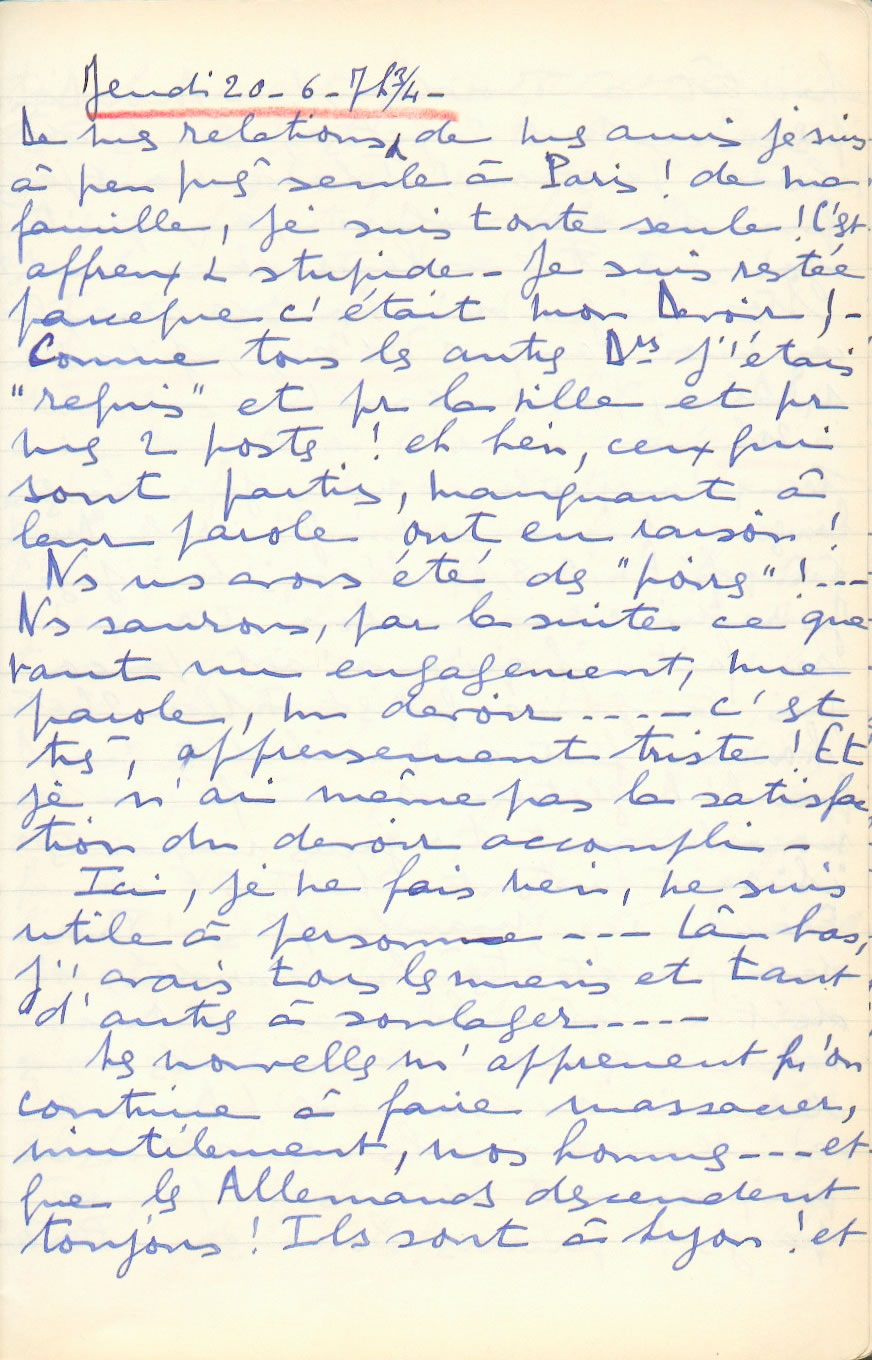 Jeudi 20 - 6 - 7 h 3/4 -
De mes relations, de mes amis je suis
à peu près seule à Paris ! de ma
famille, je suis toute seule ! C'est
affreux & stupide - Je suis restée
parceque c'était mon Devoir ! -
Comme tous les autres Drs j'étais
"requis" et pr la ville et pr
mes 2 postes ! eh bien, ceux qui
sont partis, manquant à
leur parole ont eu raison !
Ns ns avons été des "poires" ! ---
Ns saurons, par la suite ce que
vaut un engagement, une
parole, un devoir ----- c'est
très, affreusement triste ! Et
je n'ai même pas la satisfac
tion du devoir accompli -
Ici, je ne fais rien, ne suis
utile à personne --- Là bas,
j'avais tous les miens et tant
d'autres à soulager ----
Les nouvelles m'apprenent qu'on
continue à faire massacrer,
inutilement, nos hommes --- et
que les Allemands descendent
toujours ! Ils sont à Lyon ! et